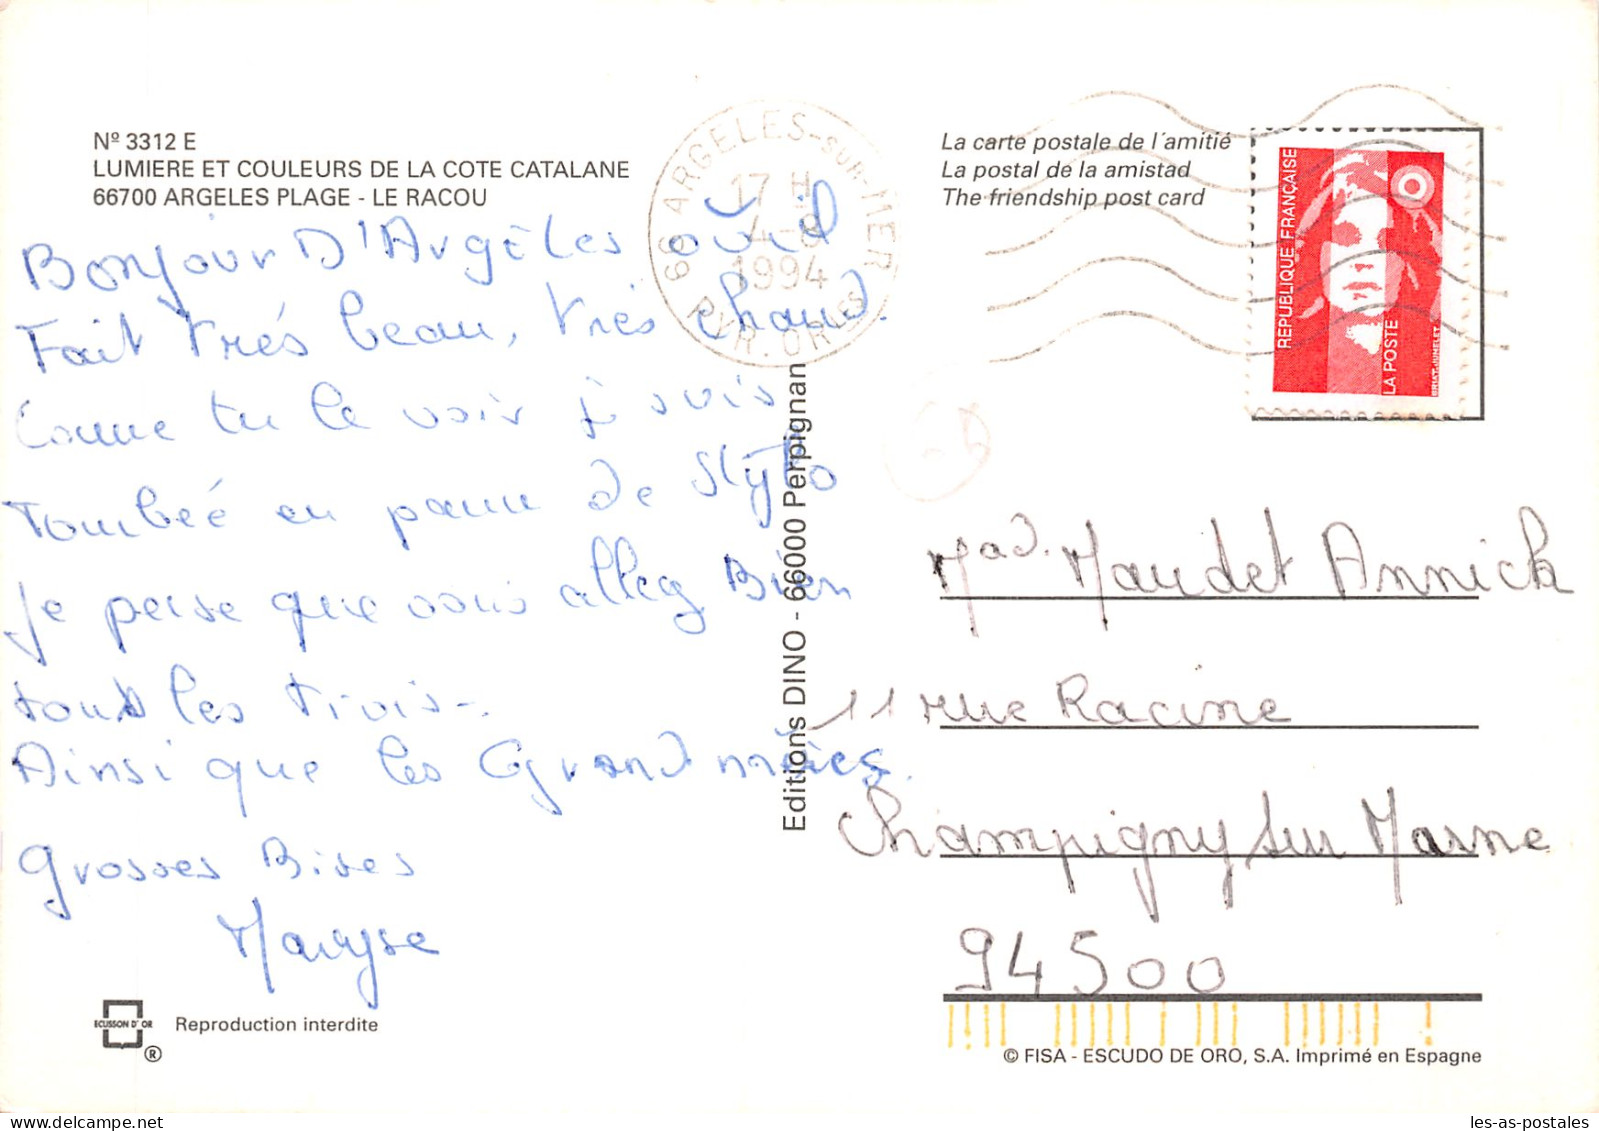 Nº 3312 E
LUMIERE ET COULEURS DE LA COTE CATALANE
66700 ARGELES PLAGE - LE RACOU
Bonjour D'Argèles ou il
Fait trés beau, trés chaud.
Comme tu le vois je suis
Tombeé en panne de stylo
Je pense que vous allez Bien
tous les trois-.
Ainsi que les Grand mères.
grosses Bises
Maryse
ECUSSON D'OR
®
Reproduction interdite
Editions DINO - 66000 Perpignan
66 ARGELES-sur-MER
17 H
4-8
1994
PYR. ORLES
La carte postale de l'amitié
La postal de la amistad
The friendship post card
REPUBLIQUE FRANÇAISE
LA POSTE
BRIAT-JUMELET
Mad. Maudet Annick
11 rue Racine
Champigny sur Marne
94500
© FISA - ESCUDO DE ORO, S.A. Imprimé en Espagne
les-as-postales